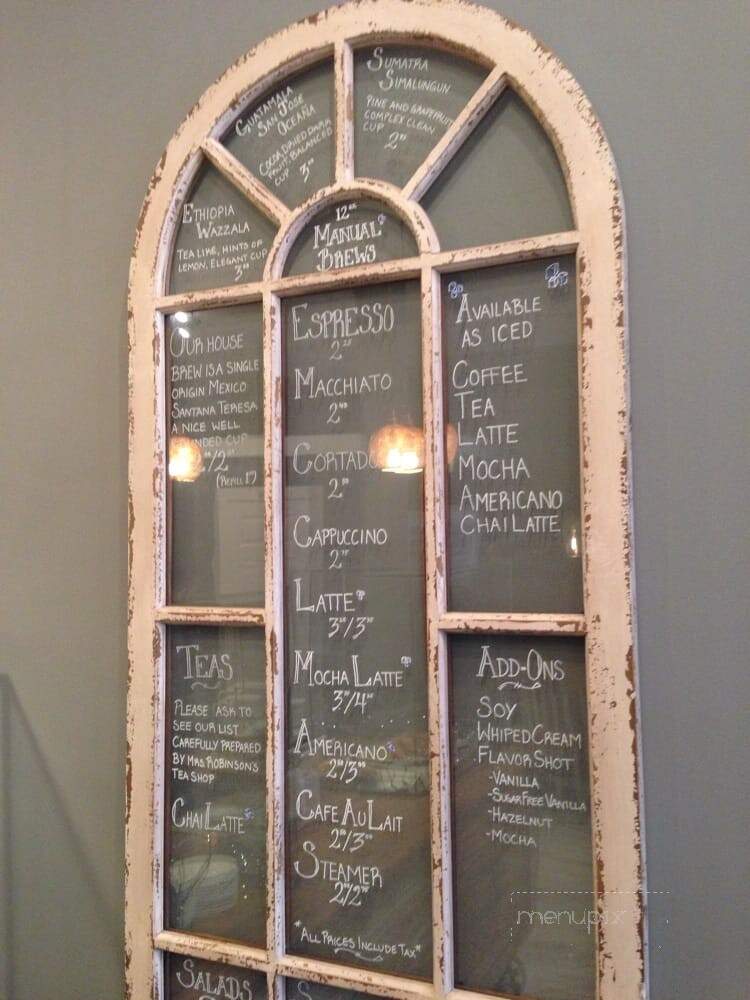 Guatamala
San Jose
Oceaña
Cocoa, Dried Dark
Fruit, Balanced
Cup
3
Sumatra
Simalungun
Pine and Grapefruit
Complex Clean
Cup
2
Ethiopia
Wazzala
Tea Like, Hints of
Lemon, Elegant Cup
3
12
Manual
Brews
Our House
Brew is a Single
Origin Mexico
Santana Teresa
A Nice Well
Cup
/2
(Refill 1)
Espresso
2
Macchiato
2
Cortado
2
Cappuccino
2
Latte
3/3
Mocha Latte
3/4
Americano
2/3
Cafe Au Lait
2/3
Steamer
2/2
*All Prices Include Tax*
Available
as Iced
Coffee
Tea
Latte
Mocha
Americano
Chai Latte
Teas
Please ask to
see our list
carefully prepared
by Mrs Robinson's
Tea Shop
Chai Latte
Add-Ons
Soy
Whiped Cream
Flavor Shot
-Vanilla
-Sugar Free Vanilla
-Hazelnut
-Mocha
Salads
menupix